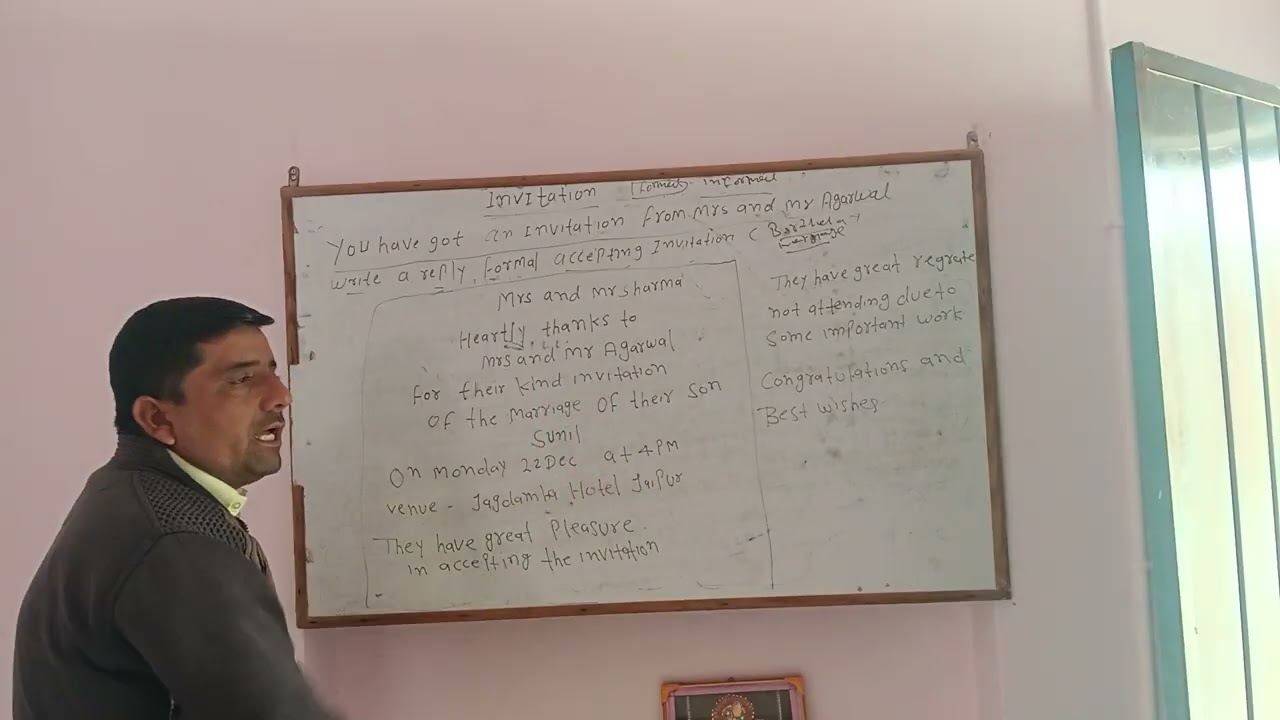 InvItation (Formal) informal
You have got an Invitation from Mrs and Mr Agarwal
write a reply, formal accepting Invitation (
Mrs and Mr sharma
Heartly thanks to
Mrs and Mr Agarwal
For their kind invitation
Of the Marriage Of their son
Sunil
On Monday 22 Dec at 4 PM
venue - Jagdamba Hotel Jaipur
They have great Pleasure.
in accepting the invitation
They have great regrate
not attending due to
Some important work
Congratulations and
Best wishes